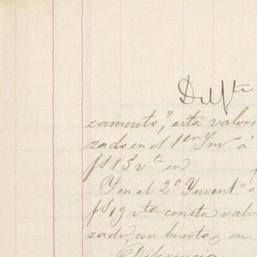 camento," esta valori
zado en el 1er Invo á
fs 15 vta en
Y en el 2o Invento á
fs 19 vta consta valori
zado, con huerta, en
Diferencia